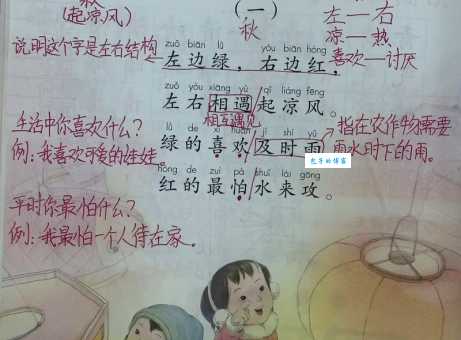 （起凉风）
（一）
秋
左—右
凉—热
喜欢—讨厌
说明这个字是左右结构
zuǒ biān lǜ yòu biān hóng
左边绿，右边红，
zuǒ yòu xiāng yù qǐ liáng fēng
左右相遇起凉风。
相互遇见
生活中你喜欢什么？
例：我喜欢可爱的娃娃。
lǜ de xǐ huān jí shí yǔ
绿的喜欢及时雨
指在农作物需要
雨水时下的雨。
包子的博客
hóng de zuì pà shuǐ lái gōng
红的最怕水来攻。
平时你最怕什么？
例：我最怕一个人待在家。